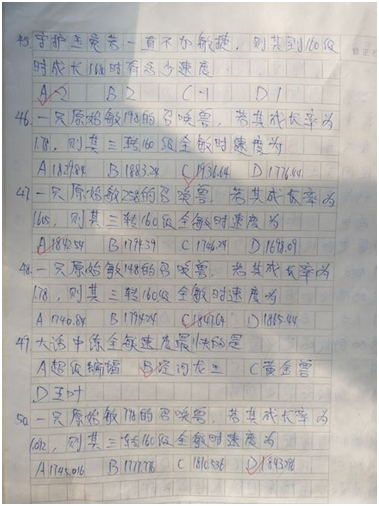 45. 守护至爱若一直不加敏捷，则其到160级
时成长1.68时有多少速度
A -2 B 2 C -1 D 1
46. 一只原始敏198的召唤兽，若其成长率为
1.78，则其三转160级全敏时速度为
A 1829.84 B 1883.24 C 1936.64 D 1776.44
47. 一只原始敏258的召唤兽，若其成长率为
1.605，则其三转160级全敏时速度为
A 1842.54 B 1794.39 C 1746.24 D 1698.09
48. 一只原始敏148的召唤兽，若其成长率为
1.78，则其三转160级全敏时速度为
A 1740.84 B 1794.24 C 1847.64 D 1865.44
49. 大话中练全敏速度最快的是
A 超级蝙蝠 B 空间龙 C 黄金兽
D 玉叶
50. 一只原始敏 的召唤兽，若其成长率为
则其三转160级全敏时速度为
A 1745.016 B 1777.776 C 1810.536 D 1843.296